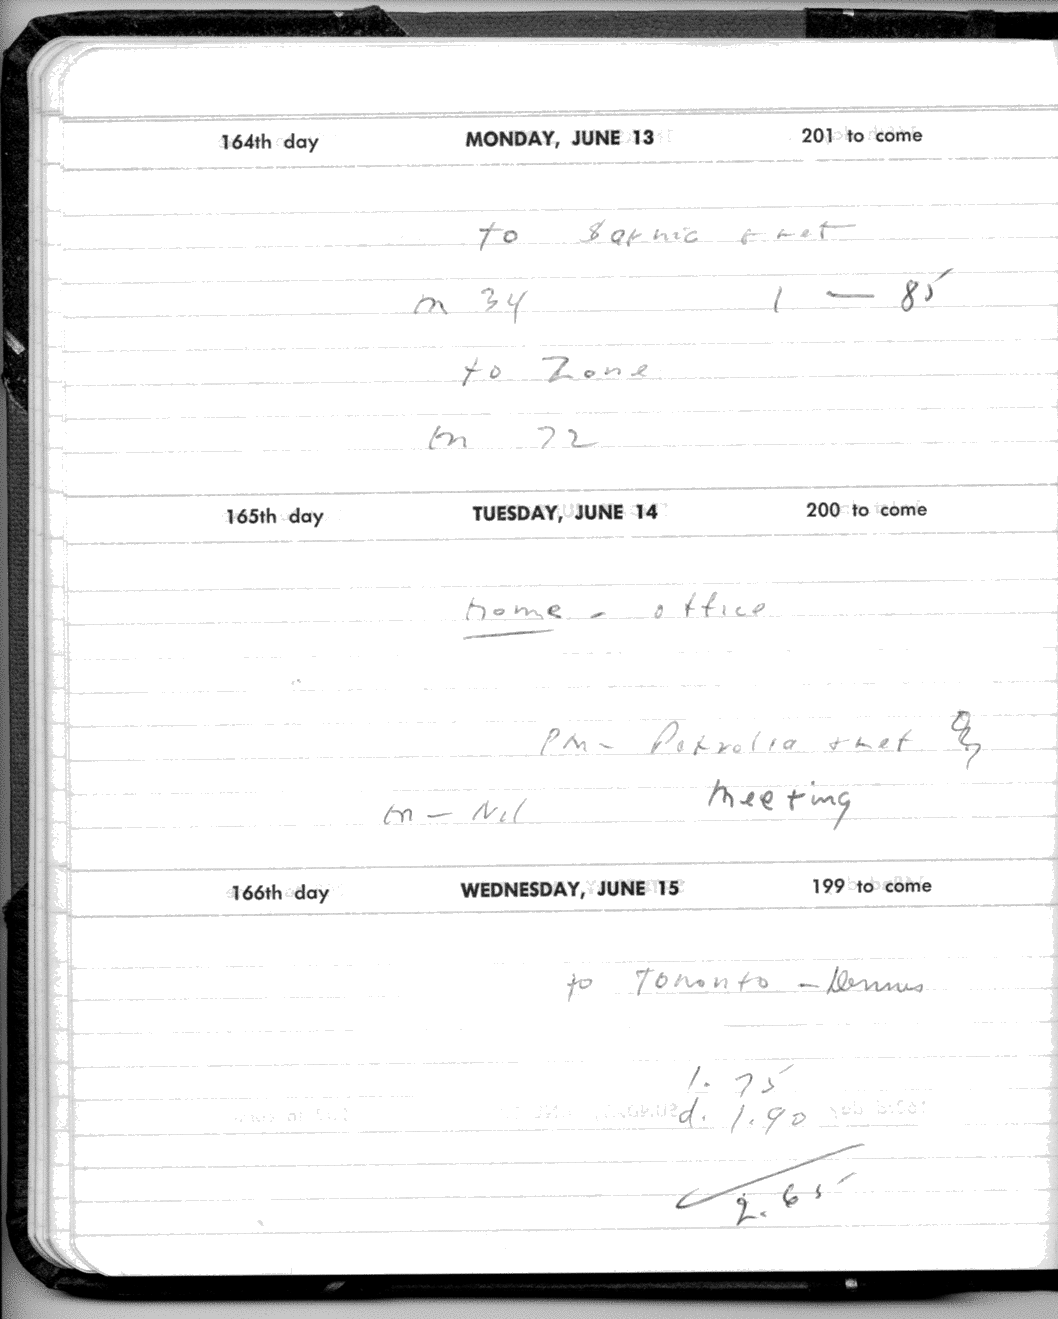 164th day MONDAY, JUNE 13 201 to come
to Sarnia & ret
m 34 1 — 85
to Zone
m 72
165th day TUESDAY, JUNE 14 200 to come
home - office
PM - Petrolia & ret
meeting
m - Nil
166th day WEDNESDAY, JUNE 15 199 to come
to Toronto - Dennis
l. 75
d. 1.90
2.65